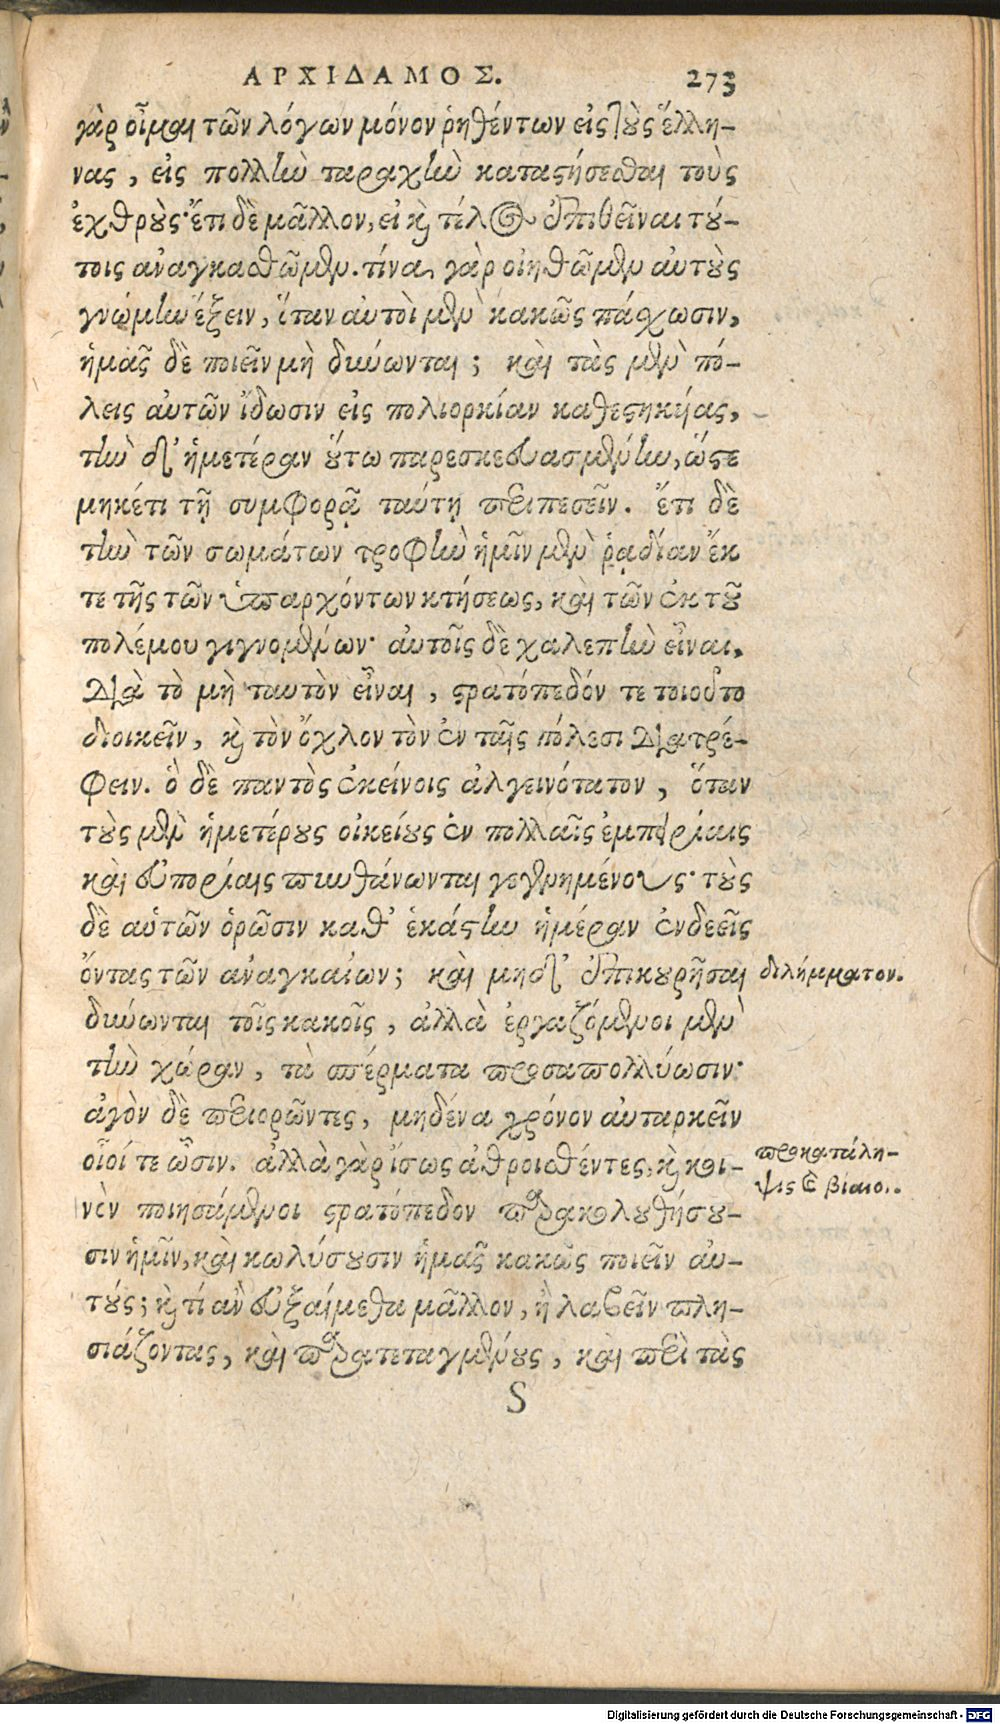 ΑΡΧΙΔΑΜΟΣ. 273
γὰρ οἶμαι τῶν λόγων μόνον ῥηθέντων εἰς τοὺς ἕλλη-
νας, εἰς πολλὴν ταραχὴν καταστήσεσθαι τοὺς
ἐχθροὺς· ἔτι δὲ μᾶλλον, εἰ καὶ τέλος ἐπιθεῖναι τού-
τοις ἀναγκασθῶμεν. τίνα γὰρ οἰηθῶμεν αὐτοὺς
γνώμην ἕξειν, ὅταν αὐτοὶ μὲν κακῶς πάσχωσιν,
ἡμᾶς δὲ ποιεῖν μὴ δύνωνται; καὶ τὰς μὲν πό-
λεις αὑτῶν ἴδωσιν εἰς πολιορκίαν καθεστηκυίας,
τὴν δ' ἡμετέραν οὕτω παρεσκευασμένην, ὥστε
μηκέτι τῇ συμφορᾷ ταύτῃ περιπεσεῖν. ἔτι δὲ
τὴν τῶν σωμάτων τροφὴν ἡμῖν μὲν ῥᾳδίαν ἔκ
τε τῆς τῶν ὑπαρχόντων κτήσεως, καὶ τῶν ἐκ τοῦ
πολέμου γιγνομένων· αὐτοῖς δὲ χαλεπὴν εἶναι,
διὰ τὸ μὴ ταυτὸν εἶναι, στρατόπεδόν τε τοιοῦτο
διοικεῖν, καὶ τὸν ὄχλον τὸν ἐν ταῖς πόλεσι διατρέ-
φειν. ὃ δὲ παντὸς ἐκείνοις ἀλγεινότατον, ὅταν
τοὺς μὲν ἡμετέρους οἰκείους ἐν πολλαῖς ἐμπορίαις
καὶ εὐπορίαις πυνθάνωνται γεγενημένους· τοὺς
δὲ αὑτῶν ὁρῶσιν καθ' ἑκάστην ἡμέραν ἐνδεεῖς
ὄντας τῶν ἀναγκαίων; καὶ μηδ' ἐπικουρῆσαι
διλήμματον.
δύνωνται τοῖς κακοῖς, ἀλλὰ ἐργαζόμενοι μὲν
τὴν χώραν, τὰ σπέρματα προσαπολλύωσιν·
ἀργὸν δὲ περιορῶντες, μηδένα χρόνον αὐταρκεῖν
οἷοί τε ὦσιν. ἀλλὰ γὰρ ἴσως ἀθροισθέντες, καὶ κοι-
προκατάλη-
ψις βίαιο..
νὸν ποιησάμενοι στρατόπεδον παρακολουθήσου-
σιν ἡμῖν, καὶ κωλύσουσιν ἡμᾶς κακῶς ποιεῖν αὐ-
τούς; καὶ τί ἂν εὐξαίμεθα μᾶλλον, ἢ λαβεῖν πλη-
σιάζοντας, καὶ παρατεταγμένους, καὶ περὶ τὰς
S
Digitalisierung gefördert durch die Deutsche Forschungsgemeinschaft - DFG